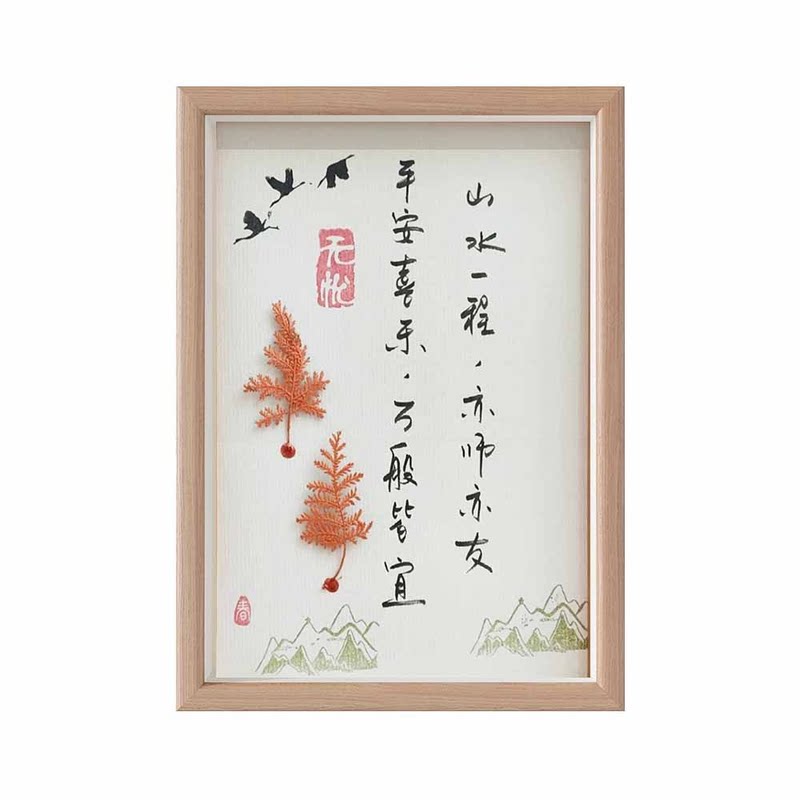 山水一程,亦师亦友
平安喜乐,万般皆宜
无忧
春